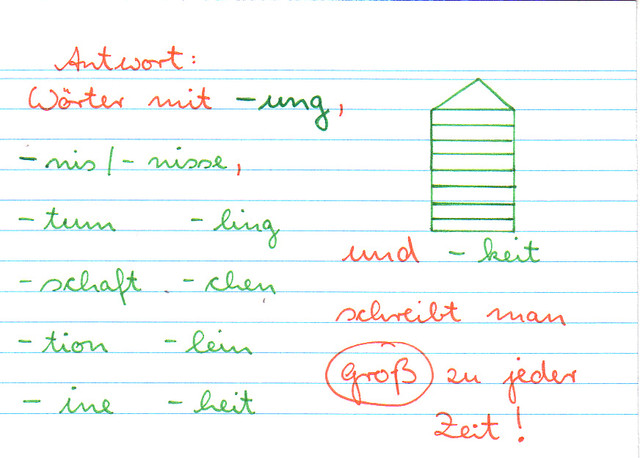 Antwort:
Wörter mit -ung,
-nis/-nisse,
-tum -ling
-schaft -chen
-tion -lein
-ine -heit
und -keit
schreibt man
groß zu jeder
Zeit!